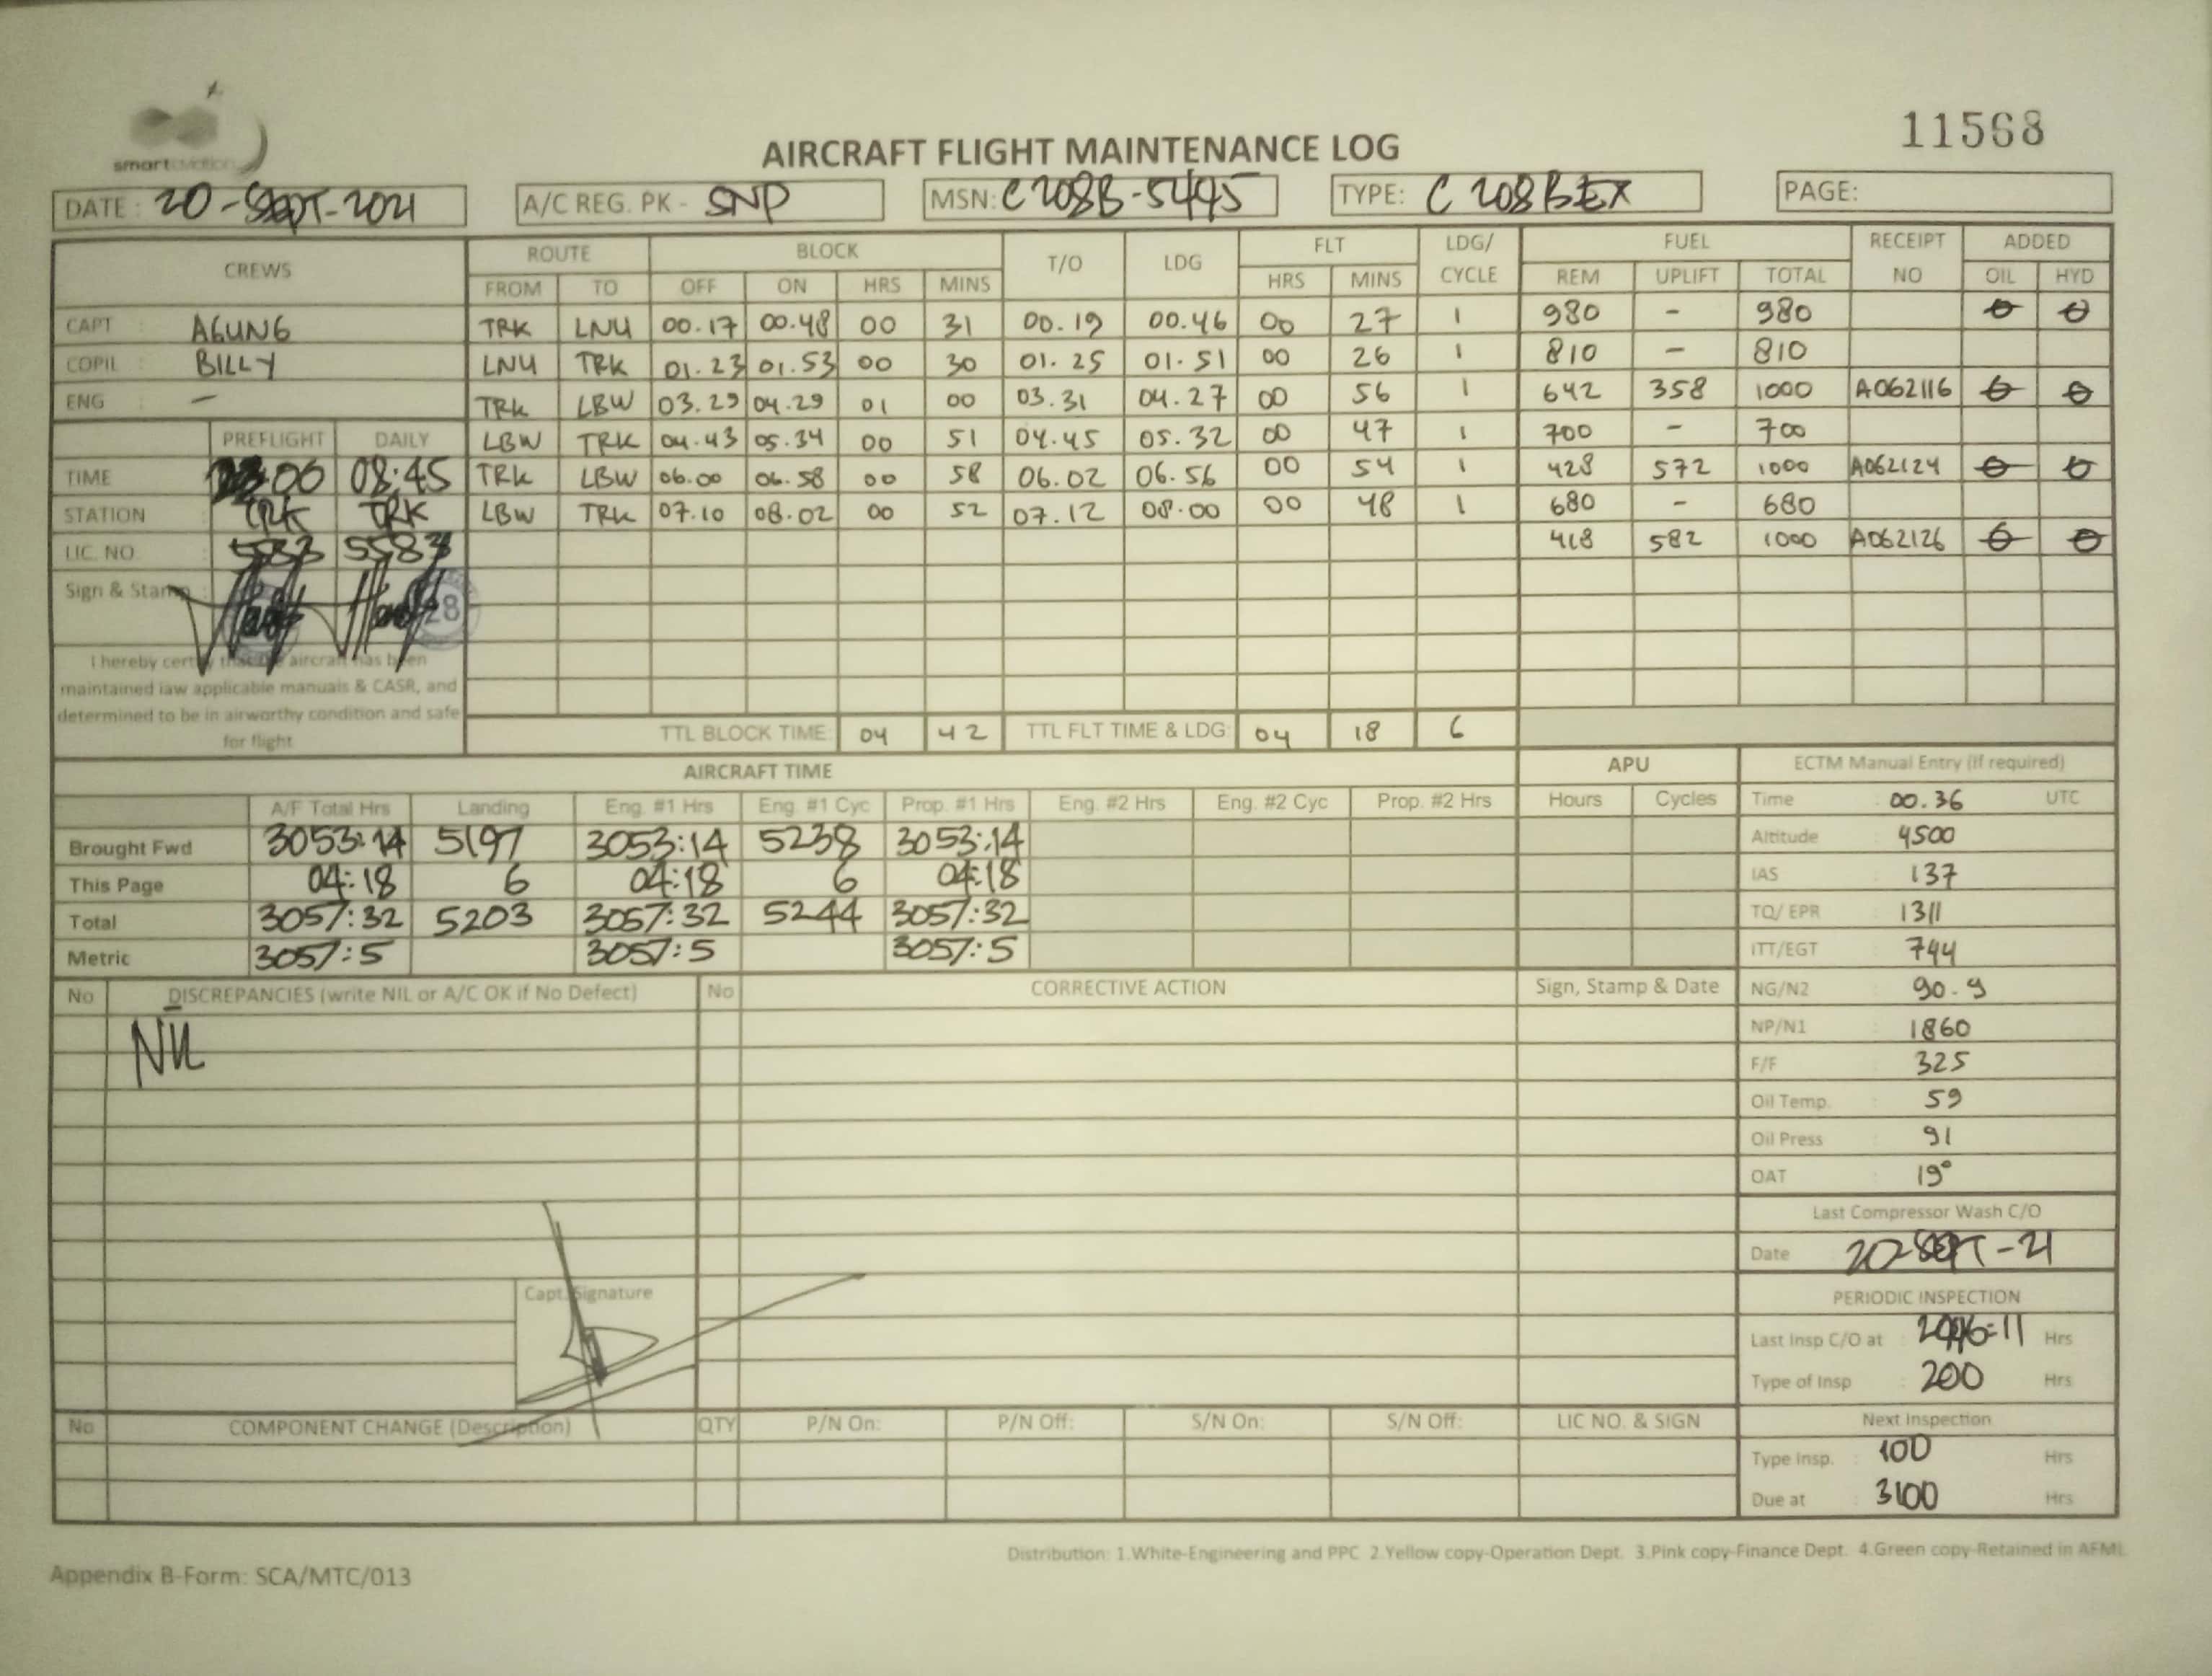 smart aviation
11568
AIRCRAFT FLIGHT MAINTENANCE LOG
DATE : 20-SEPT-2021 A/C REG. PK - SNP MSN: C208B-5495 TYPE: C 208 B EX PAGE:
CREWS ROUTE BLOCK T/O LDG FLT LDG/ CYCLE FUEL RECEIPT NO ADDED
FROM TO OFF ON HRS MINS HRS MINS REM UPLIFT TOTAL OIL HYD
CAPT : AGUNG TRK LNU 00.17 00.48 00 31 00.19 00.46 00 27 1 980 - 980 θ θ
COPIL : BILLY LNU TRK 01.23 01.53 00 30 01.25 01.51 00 26 1 810 - 810
ENG : - TRK LBW 03.29 04.29 01 00 03.31 04.27 00 56 1 642 358 1000 A062116 θ θ
PREFLIGHT DAILY LBW TRK 04.43 05.34 00 51 04.45 05.32 00 47 1 700 - 700
TIME : 08:45 TRK LBW 06.00 06.58 00 58 06.02 06.56 00 54 1 428 572 1000 A062124 θ θ
STATION : TRK TRK LBW TRK 07.10 08.02 00 52 07.12 08.00 00 48 1 680 - 680
LIC. NO : 5583 5583 418 582 1000 A062126 θ θ
Sign & Stamp : 28
I hereby certify that the aircraft has been
maintained iaw applicable manuals & CASR, and
determined to be in airworthy condition and safe
for flight
TTL BLOCK TIME 04 42 TTL FLT TIME & LDG: 04 18 6
AIRCRAFT TIME APU ECTM Manual Entry (if required)
A/F Total Hrs Landing Eng. #1 Hrs Eng. #1 Cyc Prop. #1 Hrs Eng. #2 Hrs Eng. #2 Cyc Prop. #2 Hrs Hours Cycles Time : 00.36 UTC
Brought Fwd 3053:14 5197 3053:14 5238 3053:14 Altitude : 4500
This Page 04:18 6 04:18 6 04:18 IAS : 137
Total 3057:32 5203 3057:32 5244 3057:32 TQ/ EPR : 1311
Metric 3057:5 3057:5 3057:5 ITT/EGT : 744
No DISCREPANCIES (write NIL or A/C OK if No Defect) No CORRECTIVE ACTION Sign, Stamp & Date NG/N2 : 90.9
NIL NP/N1 : 1860
F/F : 325
Oil Temp. : 59
Oil Press : 91
OAT : 19°
Last Compressor Wash C/O
Date : 20-SEPT-21
Capt. Signature
PERIODIC INSPECTION
Last Insp C/O at : Hrs
Type of Insp : 200 Hrs
No COMPONENT CHANGE (Description) QTY P/N On: P/N Off: S/N On: S/N Off: LIC NO. & SIGN Next Inspection
Type Insp. : 100 Hrs
Due at : 3100 Hrs
Distribution: 1.White-Engineering and PPC 2.Yellow copy-Operation Dept. 3.Pink copy-Finance Dept. 4.Green copy-Retained in AFML
Appendix B-Form: SCA/MTC/013